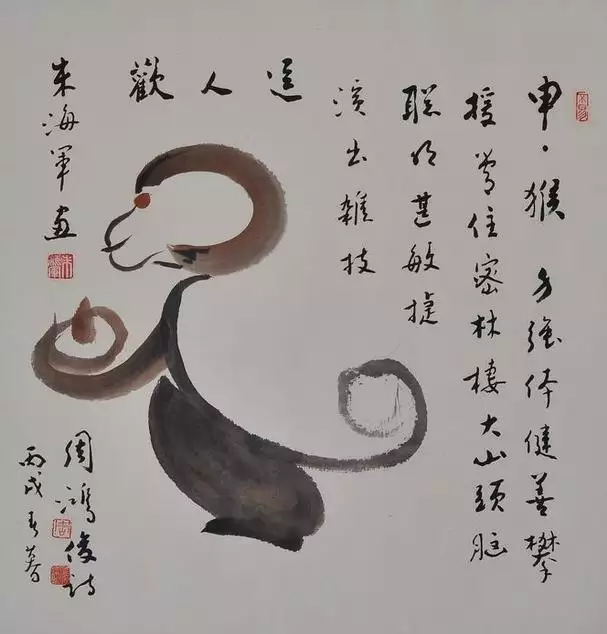 申·猴 力強体健善攀
援常住密林棲大山頭脑
聪明甚敏捷
演出雜技
逗人歡
朱海军画
周鸿俊诗
丙戌春暮